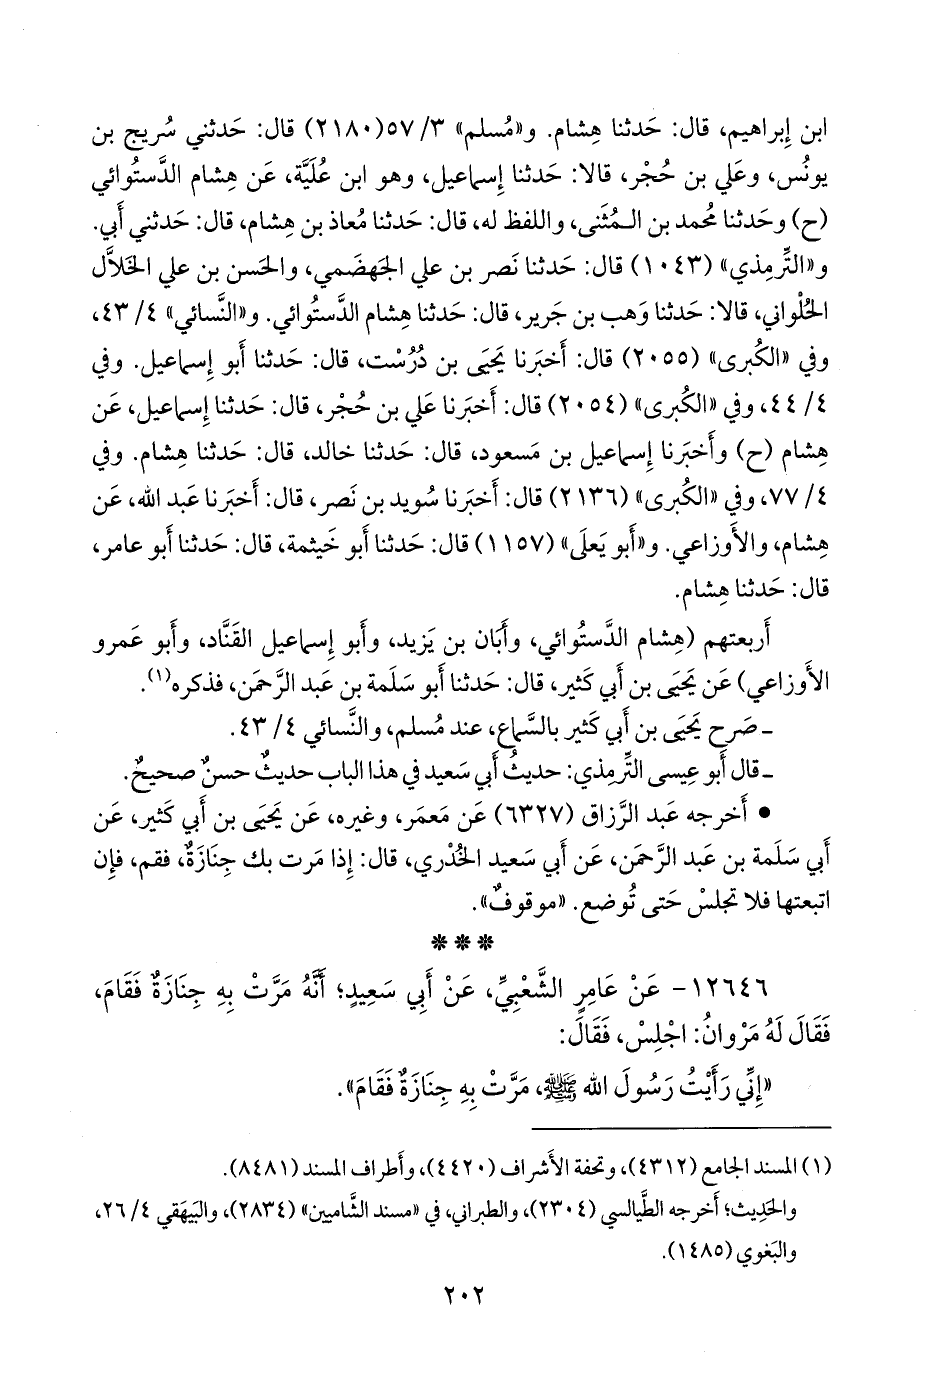 ابن إِبراهيم، قال: حَدثنا هِشام. و«مُسلم» ٣/ ٥٧(٢١٨٠) قال: حَدثني سُريج بن
يونُس، وعَلي بن حُجْر، قالا: حَدثنا إِسماعيل، وهو ابن عُلَيَّة، عَن هِشام الدَّستُوائي
(ح) وحَدثنا مُحمد بن الـمُثَنى، واللفظ له، قال: حَدثنا مُعاذ بن هِشام، قال: حَدثني أَبي.
و«التِّرمِذي» (١٠٤٣) قال: حَدثنا نَصر بن علي الجَهضَمي، والحَسن بن علي الخَلاَّل
الحُلْواني، قالا: حَدثنا وَهب بن جَرير، قال: حَدثنا هِشام الدَّستُوائي. و«النَّسائي» ٤/ ٤٣،
وفي «الكُبرى» (٢٠٥٥) قال: أَخبَرنا يَحيَى بن دُرُسْت، قال: حَدثنا أَبو إِسماعيل. وفي
٤/ ٤٤، وفي «الكُبرى» (٢٠٥٤) قال: أَخبَرنا عَلي بن حُجْر، قال: حَدثنا إِسماعيل، عَن
هِشام (ح) وأَخبَرنا إِسماعيل بن مَسعود، قال: حَدثنا خالد، قال: حَدثنا هِشام. وفي
٤/ ٧٧، وفي «الكُبرى» (٢١٣٦) قال: أَخبَرنا سُويد بن نَصر، قال: أَخبَرنا عَبد الله، عَن
هِشام، والأَوزاعي. و«أَبو يَعلَى» (١١٥٧) قال: حَدثنا أَبو خَيثمة، قال: حَدثنا أَبو عامر،
قال: حَدثنا هِشام.
أَربعتهم (هِشام الدَّستُوائي، وأَبَان بن يَزيد، وأَبو إِسماعيل القَنَّاد، وأَبو عَمرو
الأَوزاعي) عَن يَحيَى بن أَبي كَثير، قال: حَدثنا أَبو سَلَمة بن عَبد الرَّحمَن، فذكره(١).
ـ صَرح يَحيَى بن أَبي كَثير بالسَّماع، عند مُسلم، والنَّسائي ٤/ ٤٣.
ـ قال أَبو عِيسى التِّرمِذي: حديثُ أَبي سَعيد في هذا الباب حديثٌ حسنٌ صحيحٌ.
• أَخرجه عَبد الرَّزاق (٦٣٢٧) عَن مَعمَر، وغيره، عَن يَحيَى بن أَبي كَثير، عَن
أَبي سَلَمة بن عَبد الرَّحمَن، عَن أَبي سَعيد الخُدْري، قال: إِذا مَرت بك جِنَازَةٌ، فقم، فإِن
اتبعتها فلا تجلسْ حَتى تُوضع. «موقوفٌ».
* * *
١٢٦٤٦- عَنْ عَامِرٍ الشَّعْبِيِّ، عَنْ أَبِي سَعِيدٍ؛ أَنَّهُ مَرَّتْ بِهِ جِنَازَةٌ فَقَامَ،
فَقَالَ لَهُ مَرْوانُ: اجْلِسْ، فَقَالَ:
«إِنِّي رَأَيْتُ رَسُولَ الله ﷺ، مَرَّتْ بِهِ جِنَازَةٌ فَقَامَ».
(١) المسند الجامع (٤٣١٢)، وتحفة الأَشراف (٤٤٢٠)، وأَطراف المسند (٨٤٨١).
والحَدِيث؛ أَخرجه الطَّيالسي (٢٣٠٤)، والطبراني، في «مسند الشَّاميين» (٢٨٣٤)، والبَيهَقي ٤/ ٢٦،
والبَغوي (١٤٨٥).
٢٠٢